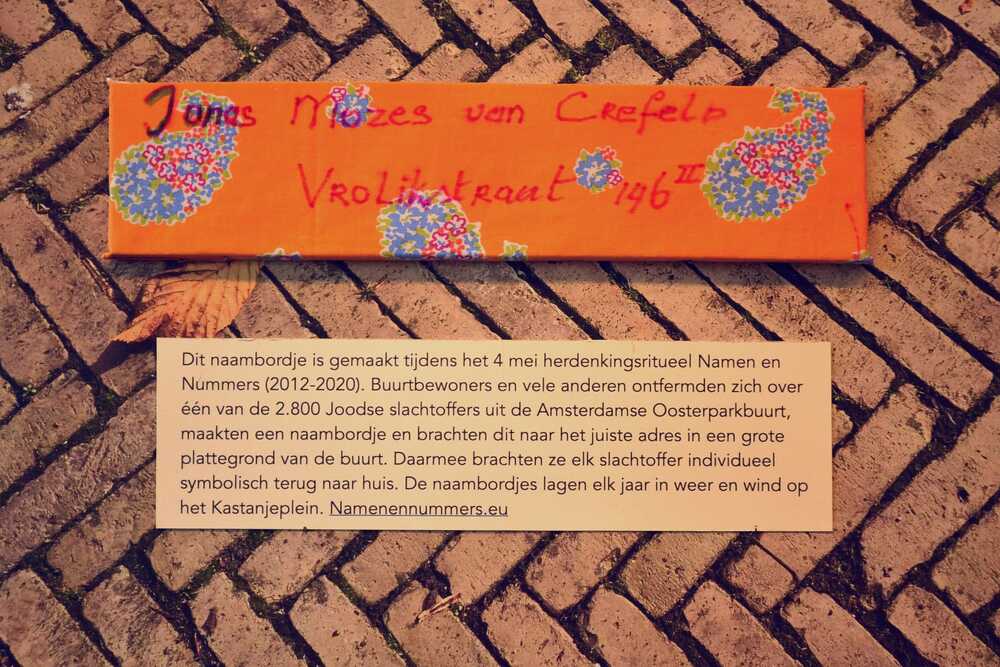 Jonas Mozes van Crefeld
Vrolikstraat 146 II
Dit naambordje is gemaakt tijdens het 4 mei herdenkingsritueel Namen en
Nummers (2012-2020). Buurtbewoners en vele anderen ontfermden zich over
één van de 2.800 Joodse slachtoffers uit de Amsterdamse Oosterparkbuurt,
maakten een naambordje en brachten dit naar het juiste adres in een grote
plattegrond van de buurt. Daarmee brachten ze elk slachtoffer individueel
symbolisch terug naar huis. De naambordjes lagen elk jaar in weer en wind op
het Kastanjeplein. Namenennummers.eu